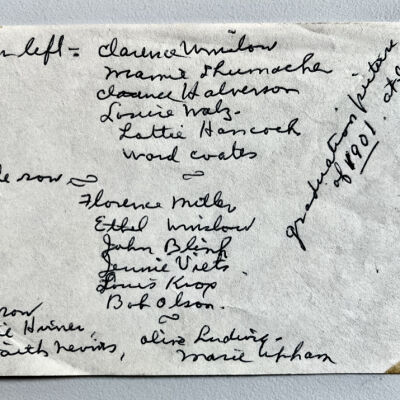 left = Clarence Winslow
Mamie Shumacher
Clarence Halverson
Louise Walz
Lottie Hancock
Word Coates
row
Florence Miller
Ethel Winslow
John Blink
Jennie Viets.
Louis Krop
Bob Olson.
row
Olive Ludwig.
Faith Nevins, Marie Upham
graduation picture
of 1901